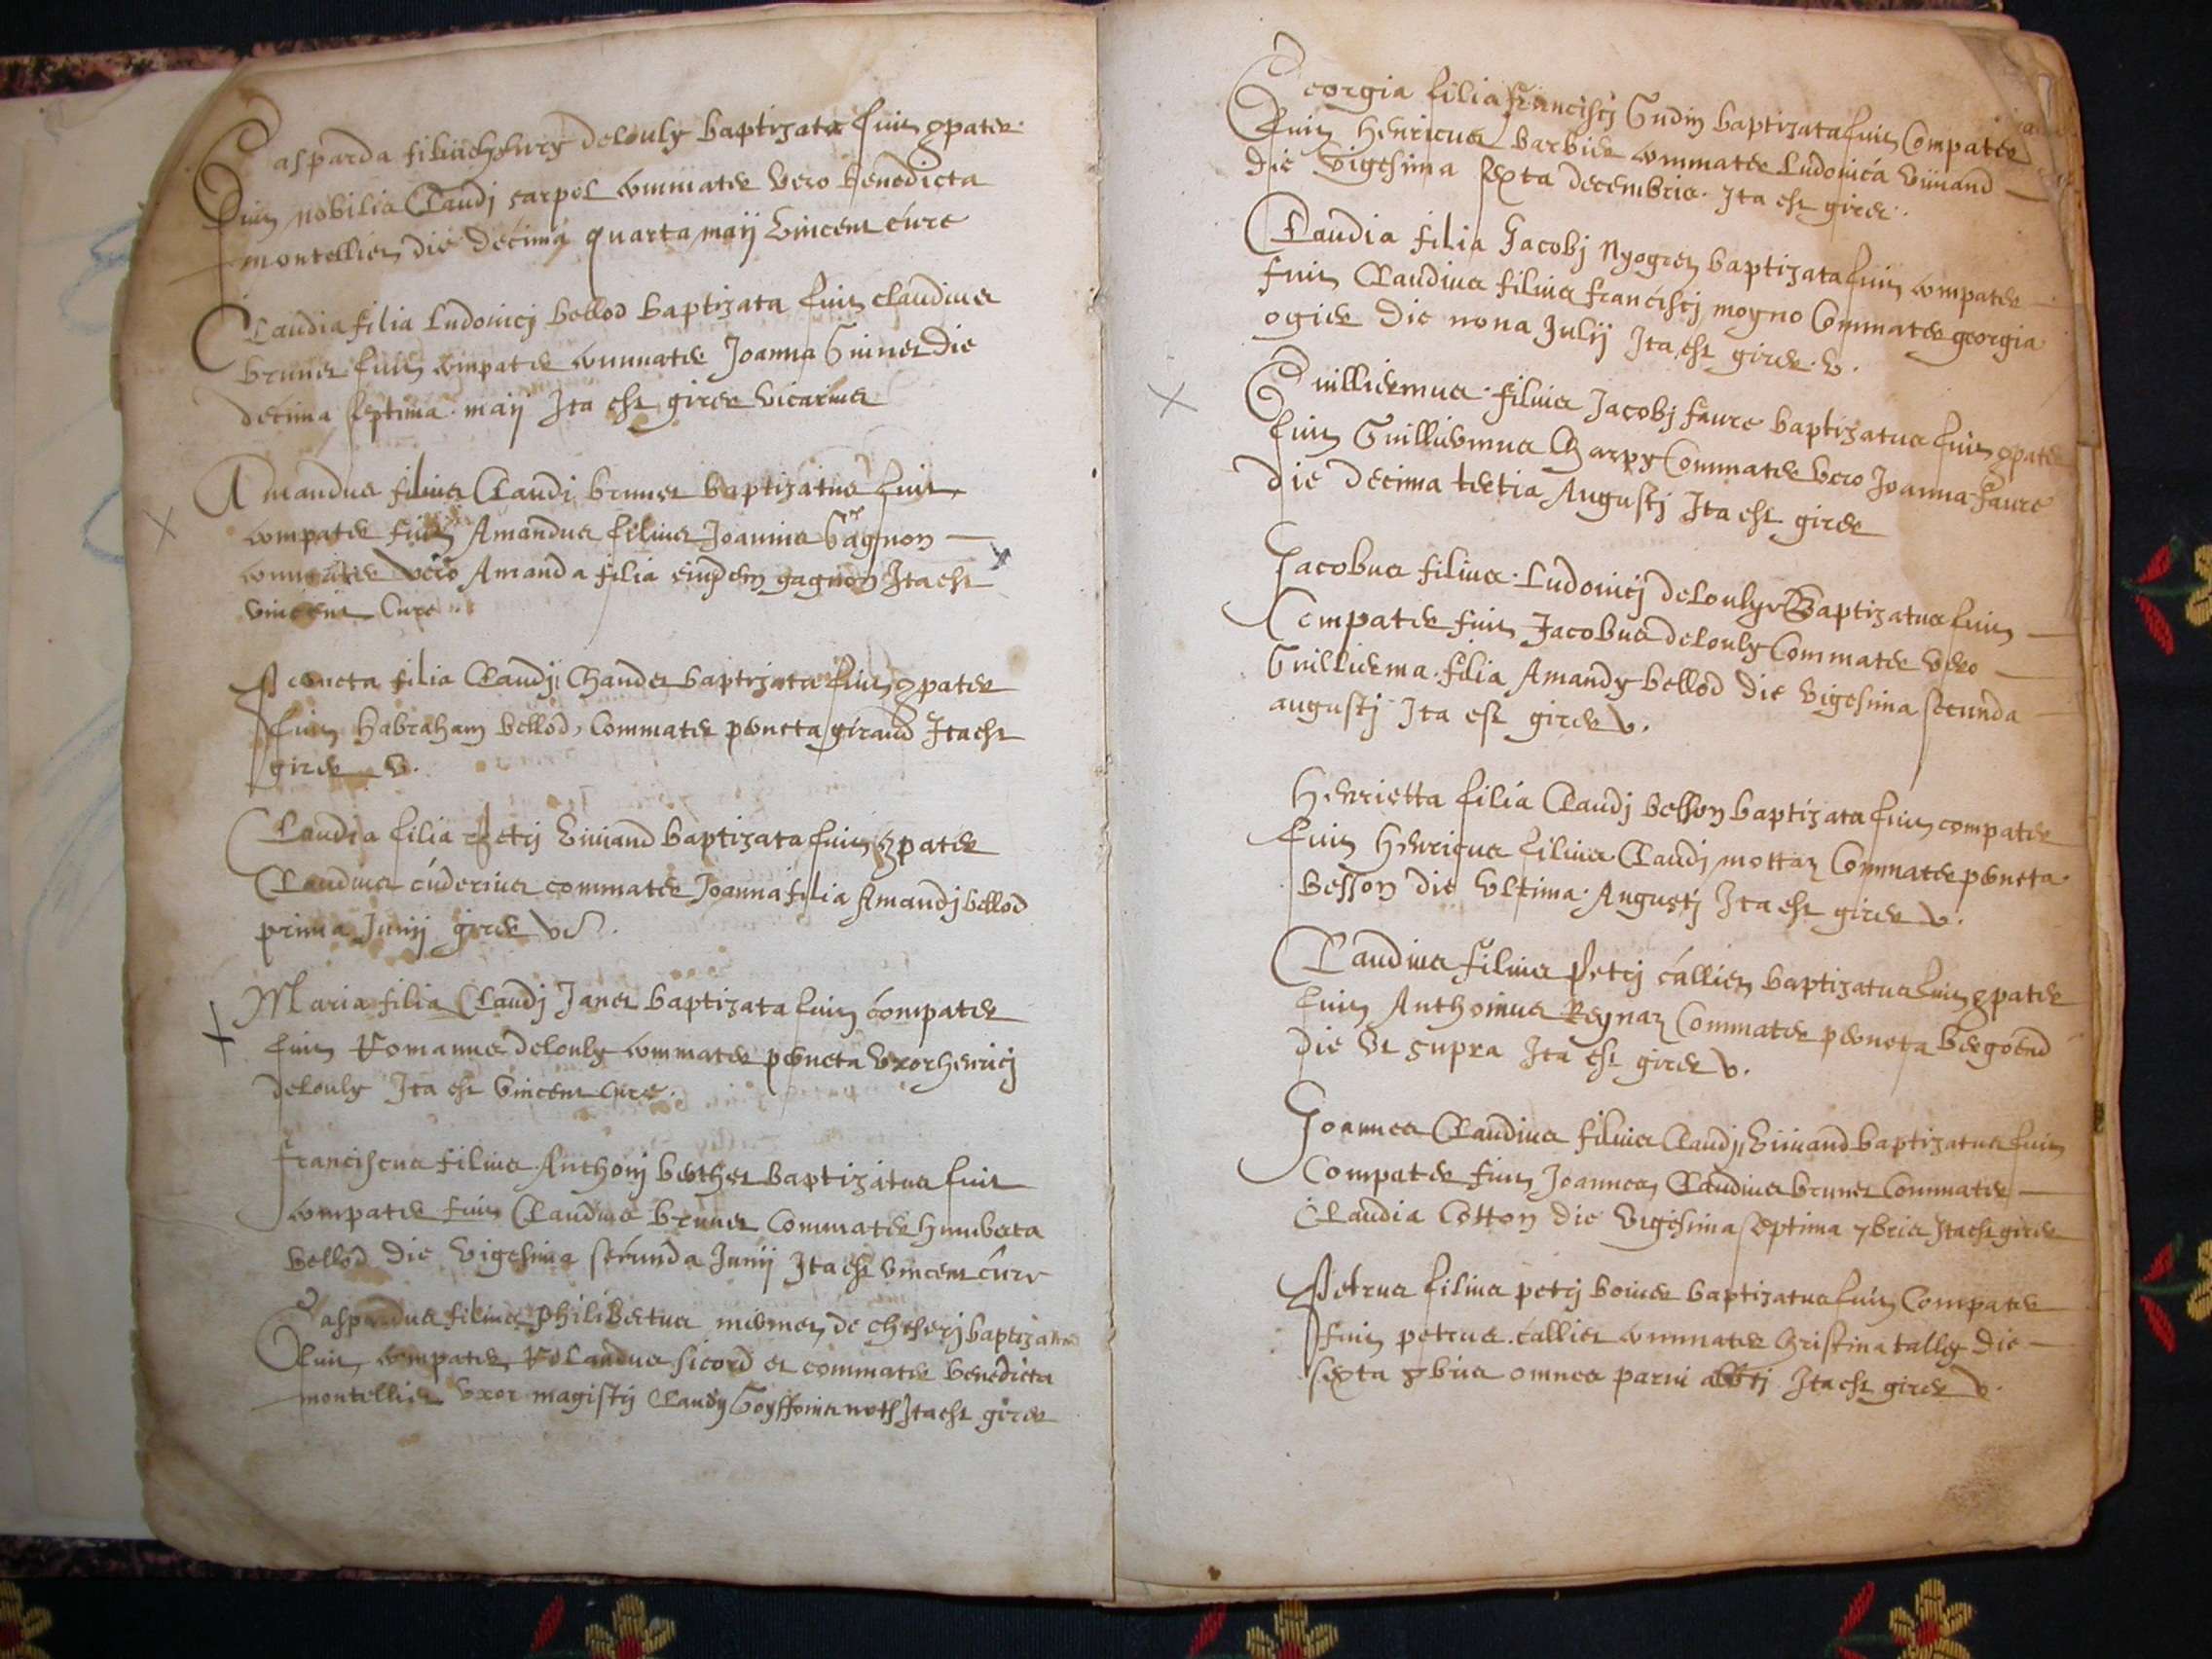 Gasparda filia henrici delouly baptizata fuit 9pater
fuit nobilis Claudj carpel commater vero benedicta
montellier die decima quarta maij vincent cure
Claudia filia Ludovicj bellod baptizata fuit claudius
brunet fuit compater commater Joanna Guinet die
decima septima maij Ita est girer vicarius
Amandus filius Claudj brunet baptizatus fuit
compater fuit Amandus filius Joannis Gagnon
commater vero Amanda filia eiusdem gagnon Ita est
vincent Cure
Perneta filia Claudj Chandet baptizata fuit 9pater
fuit habraham bellod, Commater perneta giraud Ita est
girer v.
Claudia filia petrj Viuiand baptizata fuit 9pater
Claudius commater Joanna filia Amandj bellod
prima Junij girer
Maria filia Claudj Janet baptizata fuit compater
fuit Romanus delouly commater perneta vxor henricj
delouly Ita est vincent cure.
franciscus filius Anthonj berthet baptizatus fuit
compater fuit Claudius brunet Commater humberta
bellod die vigesima secunda Junij Ita est vincent cure
Gaspardus filius philibertus mermet de baptizatus
fuit compater Rolandus sicord et commater benedicta
montellier vxor magistrj Claudij Goyffonis Ita est girer
Georgia filia franciscj Gudin baptizata fuit Compater
fuit henricus barbier commater Ludovica viuiand
die vigesima sexta decembris. Ita est girer.
Claudia filia Jacobj Nyogret baptizata fuit compater
fuit Claudius filius franciscj moyno Commater georgia
ogier die nona Julij Ita est girer. v.
Guillermus filius Jacobj faure baptizatus fuit 9pater
fuit Guillermus Charpy Commater vero Joanna faure
die decima tertia Augustj Ita est girer
Jacobus filius Ludovicj delouly Baptizatus fuit
Compater fuit Jacobus delouly Commater vero
Guillerma filia Amandy bellod die vigesima secunda
augustj Ita est girer v.
Henrietta filia Claudj besson baptizata fuit compater
fuit Henricus filius Claudj mottaz Commater perneta
besson die vltima Augustj Ita est girer v.
Claudius filius petrj callier baptizatus fuit 9pater
fuit Anthonius Reynaz Commater perneta bergoend
die vt supra Ita est girer v.
Joannes Claudius filius Claudj Viuiand baptizatus fuit
Compater fuit Joannes Claudius brunet Commater
Claudia Cotton die vigesima septima 7bris Ita est girer
Petrus filius petrj boiuer baptizatus fuit Compater
fuit petrus callier commater Christina tally die
sexta 8bris omnes parui Ita est girer v.